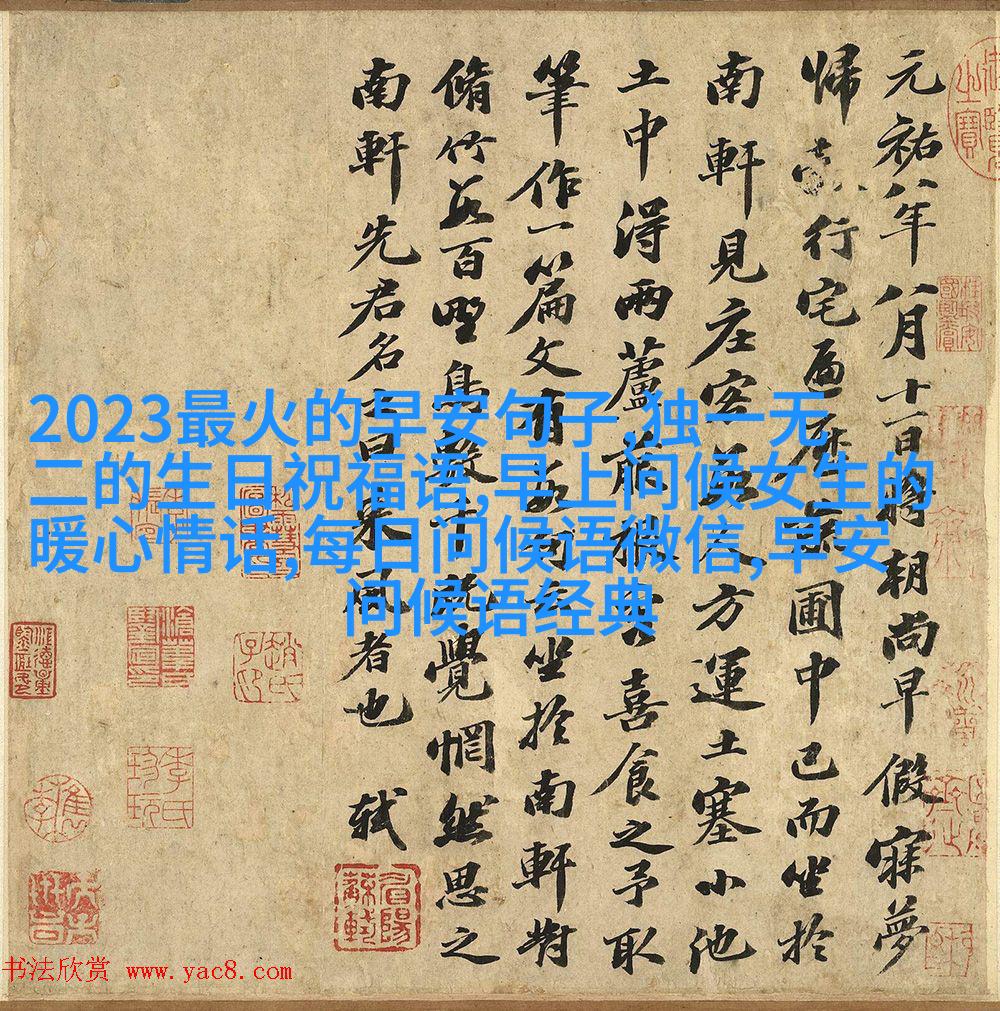 元祐八年八月十一日將朝尚早假寐夢
歸行宅遍歷蔬圃中已而坐於
南軒見庄客數人方運土塞小池
土中得兩蘆菔根客喜食之予取
筆作一篇文有數句云坐於南軒對
脩竹數百野鳥數千既覺惘然思之
南軒先君名之曰來風者也 軾
眉陽蘇軾
2023最火的早安句子 独一无
二的生日祝福语,早上问候女生的
暖心情话,每日问候语微信,早安
问候语经典
书法欣赏 www.yac8.com